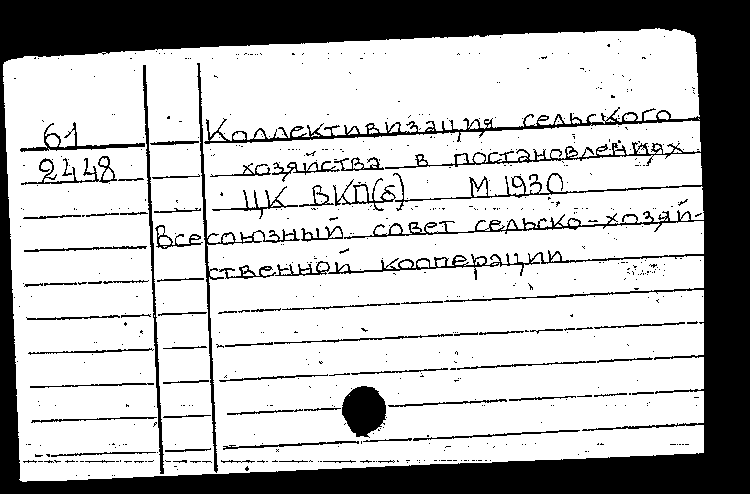 61 Коллективизация сельского
2448 хозяйства в постановлениях
ЦК ВКП(б) М 1930
Всесоюзный совет сельско-хозяй-
ственной кооперации